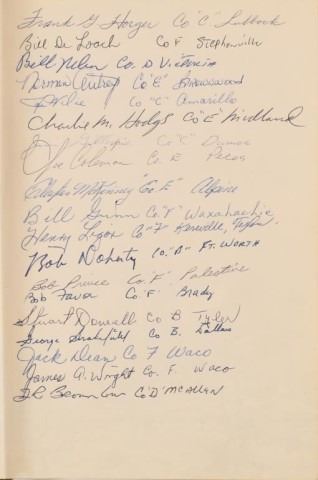 Frank G Horger Co "C" Lubbock
Bill De Loach Co F Stephenville
Bill Co. D Victoria
Norman Autrey Co "E" Brownwood
Co "C" Amarillo
Charlie M. Hodges Co "E" Midland
Co "C" Dumas
Joe Coleman Co. E Pecos
McKinney "Co E" Alpine
Bill Gunn Co "F" Waxahachie
Henry Ligon Co "F" Kerrville, Texas
Bob Doherty Co. "B" Ft. Worth
Bob Prince Co "F" Palestine
Bob Favor Co "F" Brady
Stuart Dowell Co B Tyler
George Co B. Dallas
Jack Dean Co F Waco
James A. Wright Co. F. Waco
Co "D" McAllen